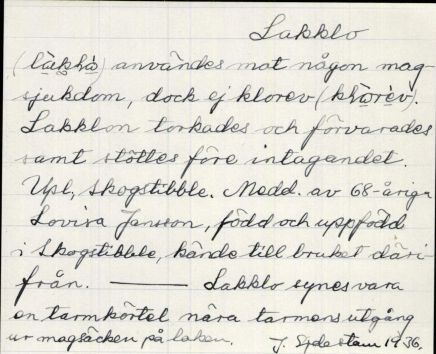 Lakklo
(làkhà) användes mot någon mag-
sjukdom, dock ej klorev (khòrèv).
Lakklon torkades och förvarades
samt stöttes före intagandet.
Upl, Skogstibble. Medd. av 68-åriga
Lovisa Jansson, född och uppfödd
i Skogstibble, kände till bruket däri-
från. ——— Lakklo synes vara
en tarmkörtel nära tarmens utgång
ur magsäcken på laken. 1936.